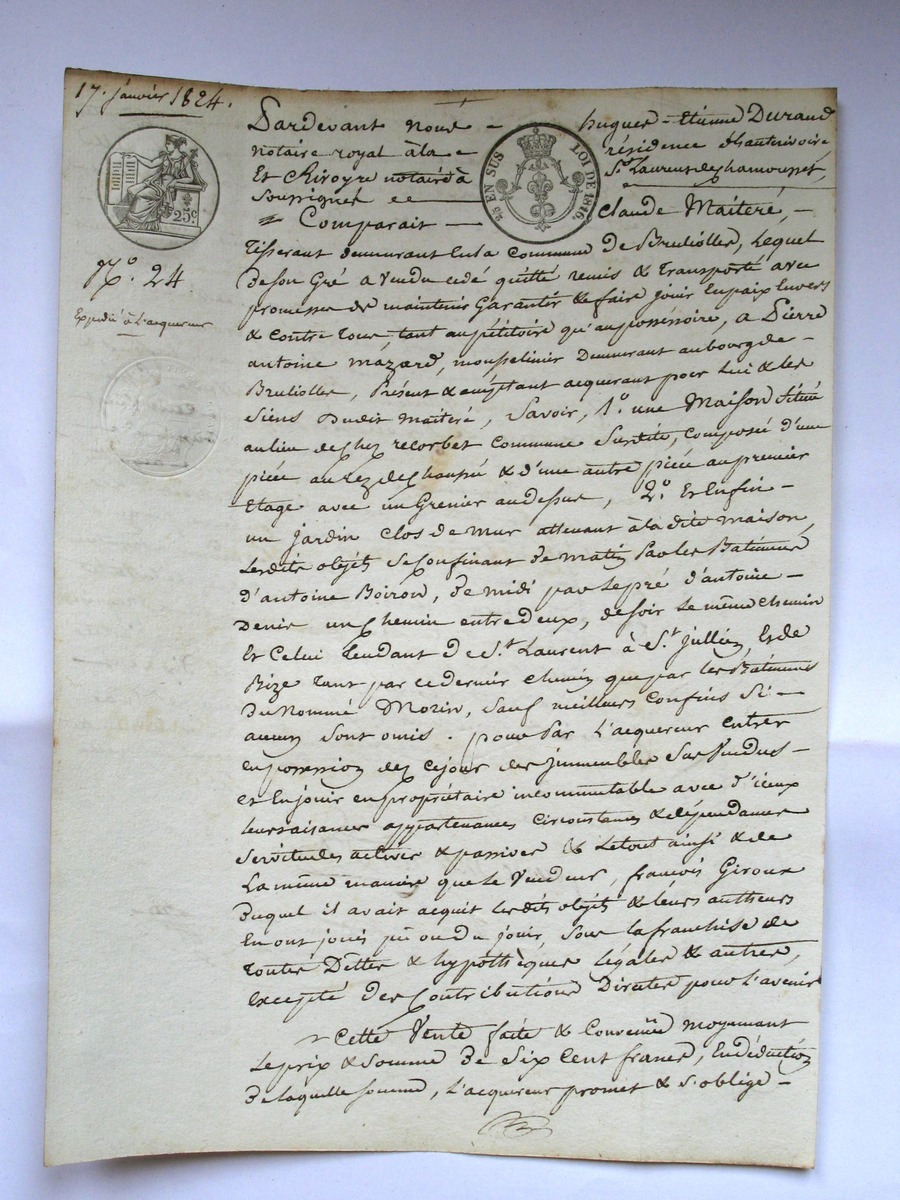 17. Janvier 1824.
25 c.
N.o 24
Expédié à L'acquereur
25 EN SUS LOI DE 1816
Pardevant nous — hugues - Etienne Durand
notaire royal à la résidence d'hauterivoire
Et Rivoyre notaire à St. Laurent de chamousset,
Soussignés
Comparait — Claude Maiteré, —
Tisserant demeurant En la Commune de Brullioles, Lequel
de son Gré a Vendu cedé quitté remis & Transporté avec
promesse de maintenir Garantir & faire jouir En paix Envers
& contre Tous, tant au pétitoire qu'au possessoire, a Pierre
antoine mazard, mousselinier Demeurant au bourg de —
Brullioles, Présent & acceptant acquerant pour Lui & les
Siens Dudit Maiteré, Savoir, 1.o une Maison Située
au lieu de Chez recorbet Commune Susdite, Composée d'une
pièce au rez de Chaussé & d'une autre pièce au premier
Etage avec un Grenier au dessus, 2.o Et Enfin —
un jardin clos de mur attenant à la dite maison,
Lesdits objets Se Confinant de matin Par les Batimens
D'antoine Boiron, de midi par le pré d'antoine —
Denis un Chemin entre deux, de soir Le même chemin
Et Celui Tendant de St. Laurent à St. Jullien, Et de
Bize tant par ce dernier chemin que par les Batimens
du Nommé Morin, Sauf meilleurs Confins Si —
aucuns Sont omis. pour Par L'acquereur Entrer
en possession dez Cejour des immeubles Sus Vendus —
et En jouir en propriétaire incommutable avec d'iceux
Leurs aisances appartenances Circonstances & dépendances
Servitudes actives & passives & Letout ainsi & de
La même maniere que le Vendeur, françois Giroux
Duquel il avait acquit Lesdits objets & Leurs autheurs
En ont joui pû ou du jouir, Sous la franchise de
Toutes Dettes & hypothèques Légales & autres,
Excepté des Contributions Directes pour L'avenir
Cette Vente faite & Convenue moyennant
Le prix & Somme De Six Cent francs, En déduction
De laquelle Somme, L'acquereur promet & S'oblige —